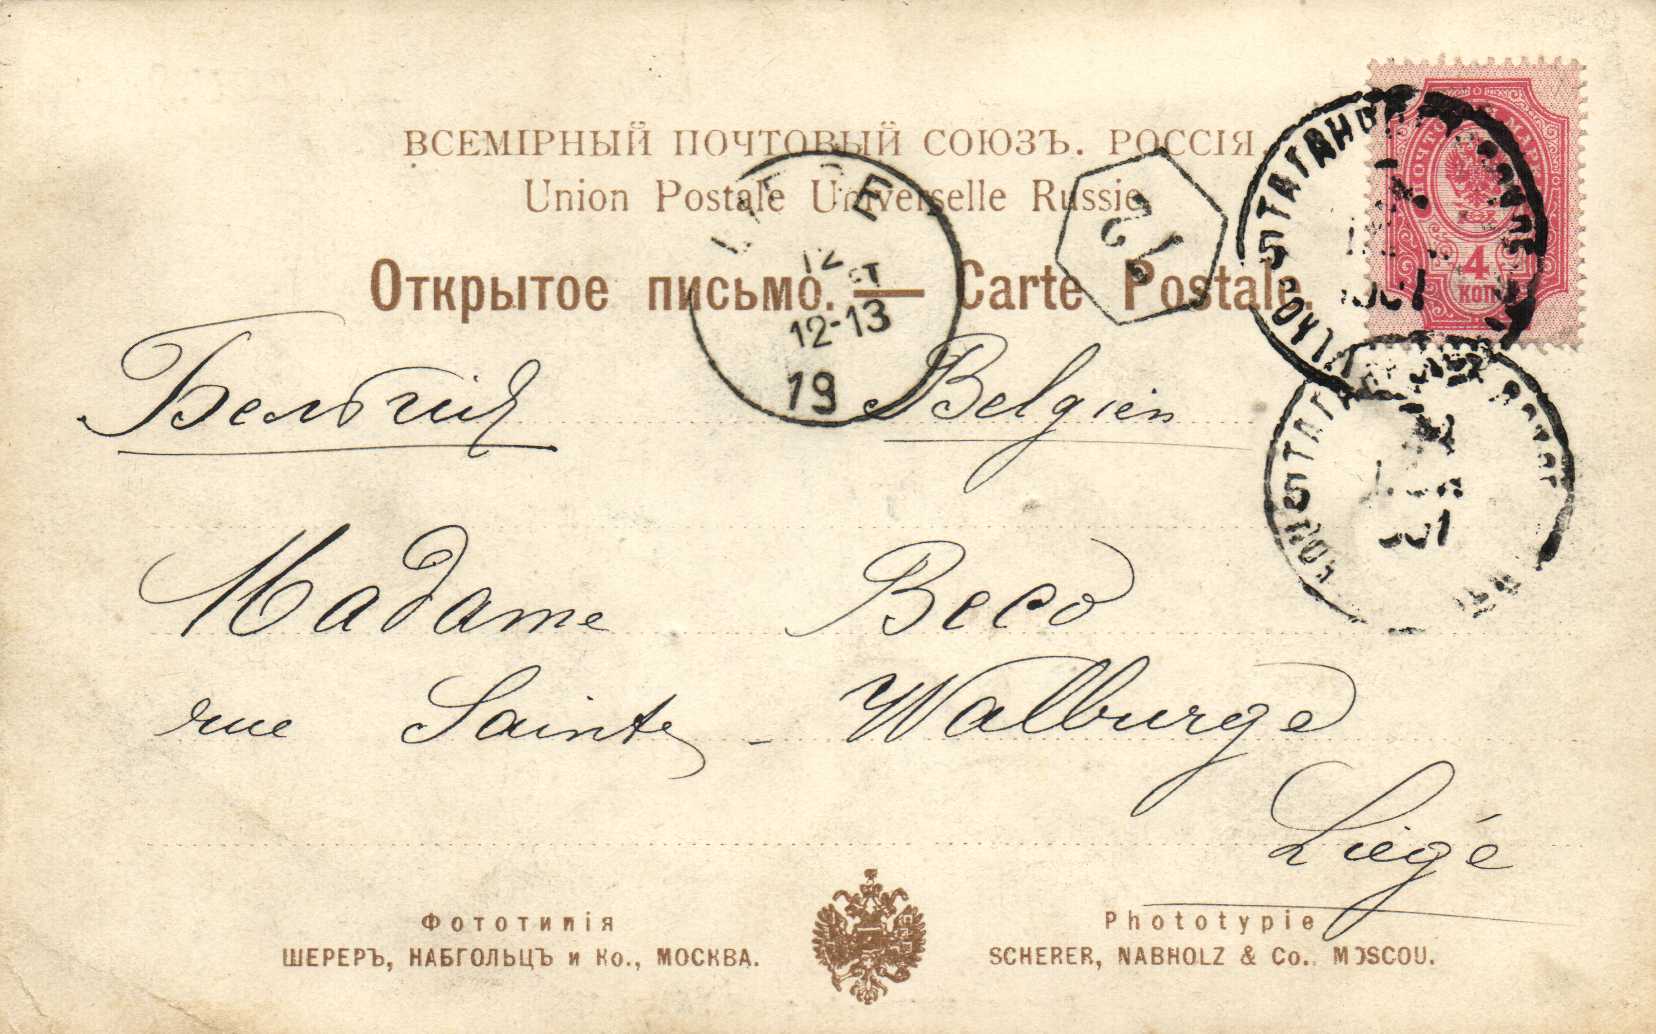 ВСЕМІРНЫЙ ПОЧТОВЫЙ СОЮЗЪ. РОССІЯ
Union Postale Universelle Russie
Открытое письмо. — Carte Postale.
12
12
ET
12-13
19
4
КОП
Бельгия Belgien
Madame Beco
rue Sainte - Walburge
Liegé
Фототипія
ШЕРЕРЪ, НАБГОЛЬЦЪ и Ко., МОСКВА.
Phototypie
SCHERER, NABHOLZ & Co. MOSCOU.